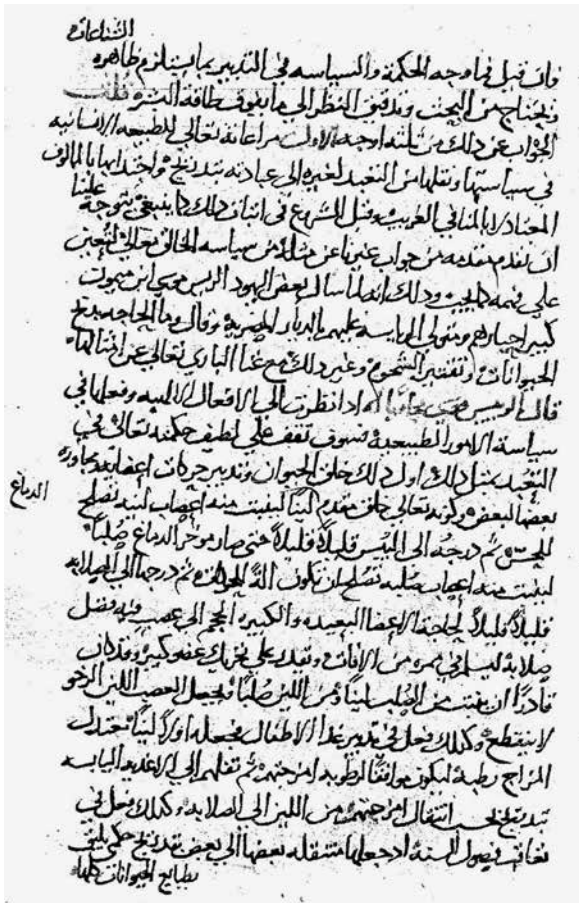 الشناعات
فان قيل فما وجه الحكمة والسياسه في التدبير بما يستلزم ظاهره
ويحتاج من البحث وتدقيق النظر الى ما يفوق طاقة البشر قلت
الجواب عن ذلك من ثلثه اوجه الاول مراعاته تعالى للطبيعه الانسانيه
في سياستها ونقلها من التعبد لغيره الى عبادته بتدريج واجتذابها بالمالوف
المعتاد لا بالمنافي الغريب وقبل الشروع في اثبات ذلك كما ينبغي يتوجه علينا
ان نقدم مقدمه من جواب عن مثال من سياسه الخالق تعالى لتعين
على فهمه كما يجب وذلك انه لما سال بعض اليهود الريس موسى ابن ميمون
كبير احبارهم ومتولى الرياسه عليهم بالديار المصرية وقال وما الحاجه بذبح
الحيوانات وتقتير الشحوم وغير ذلك مع غنا الباري تعالى عن امثالها
قال الريس موسى مجاوبًا له اذا نظرت الى الافعال الالهيه وفعلها في
سياسة الامور الطبيعية فسوف تقف على لطيف حكمته تعالى في
التعبد بمثل ذلك اول ذلك خلق الحيوان وتدبير حركات اعضائه ومجاورة
بعضها لبعض وكونه تعالى خلق مقدم الدماغ لينًا لينبت منه اعصاب لينه تصلح
للحس ثم درجه الى اليبس قليلاً قليلاً حتى صار موخر الدماغ صُلبًا
لينبت منه اعصاب صلبه تصلح ان تكون الة للحركة ثم درجها الى الصلابه
قليلاً قليلاً لحاجة الاعضا البعيده والكبيره الحجم الى عصب فيه فضل
صلابة ليسلم في ممره من الافات ويقدر على تحريك عضو كبير وقد كان
قادرًا ان ينبت من الصلب لينًا ومن اللين صُلبًا ويجعل العصب اللين الرخو
لا ينقطع وكذلك فعل في تدبير غذا الاطفال فجعله اولاً لينًا معتدل
المزاج رطبا ليكون موافقًا لرطوبه امزجتهم ثم نقلهم الى الاغذيه اليابسه
بتدريج بحسب انتقال امزجتهم من اللين الى الصلابه وكذلك فعل في
تعاقب فصول السنة اذ جعلها منتقله بعضها الى بعض بتدريج حكمي يليق
بطبايع الحيوانات كلها